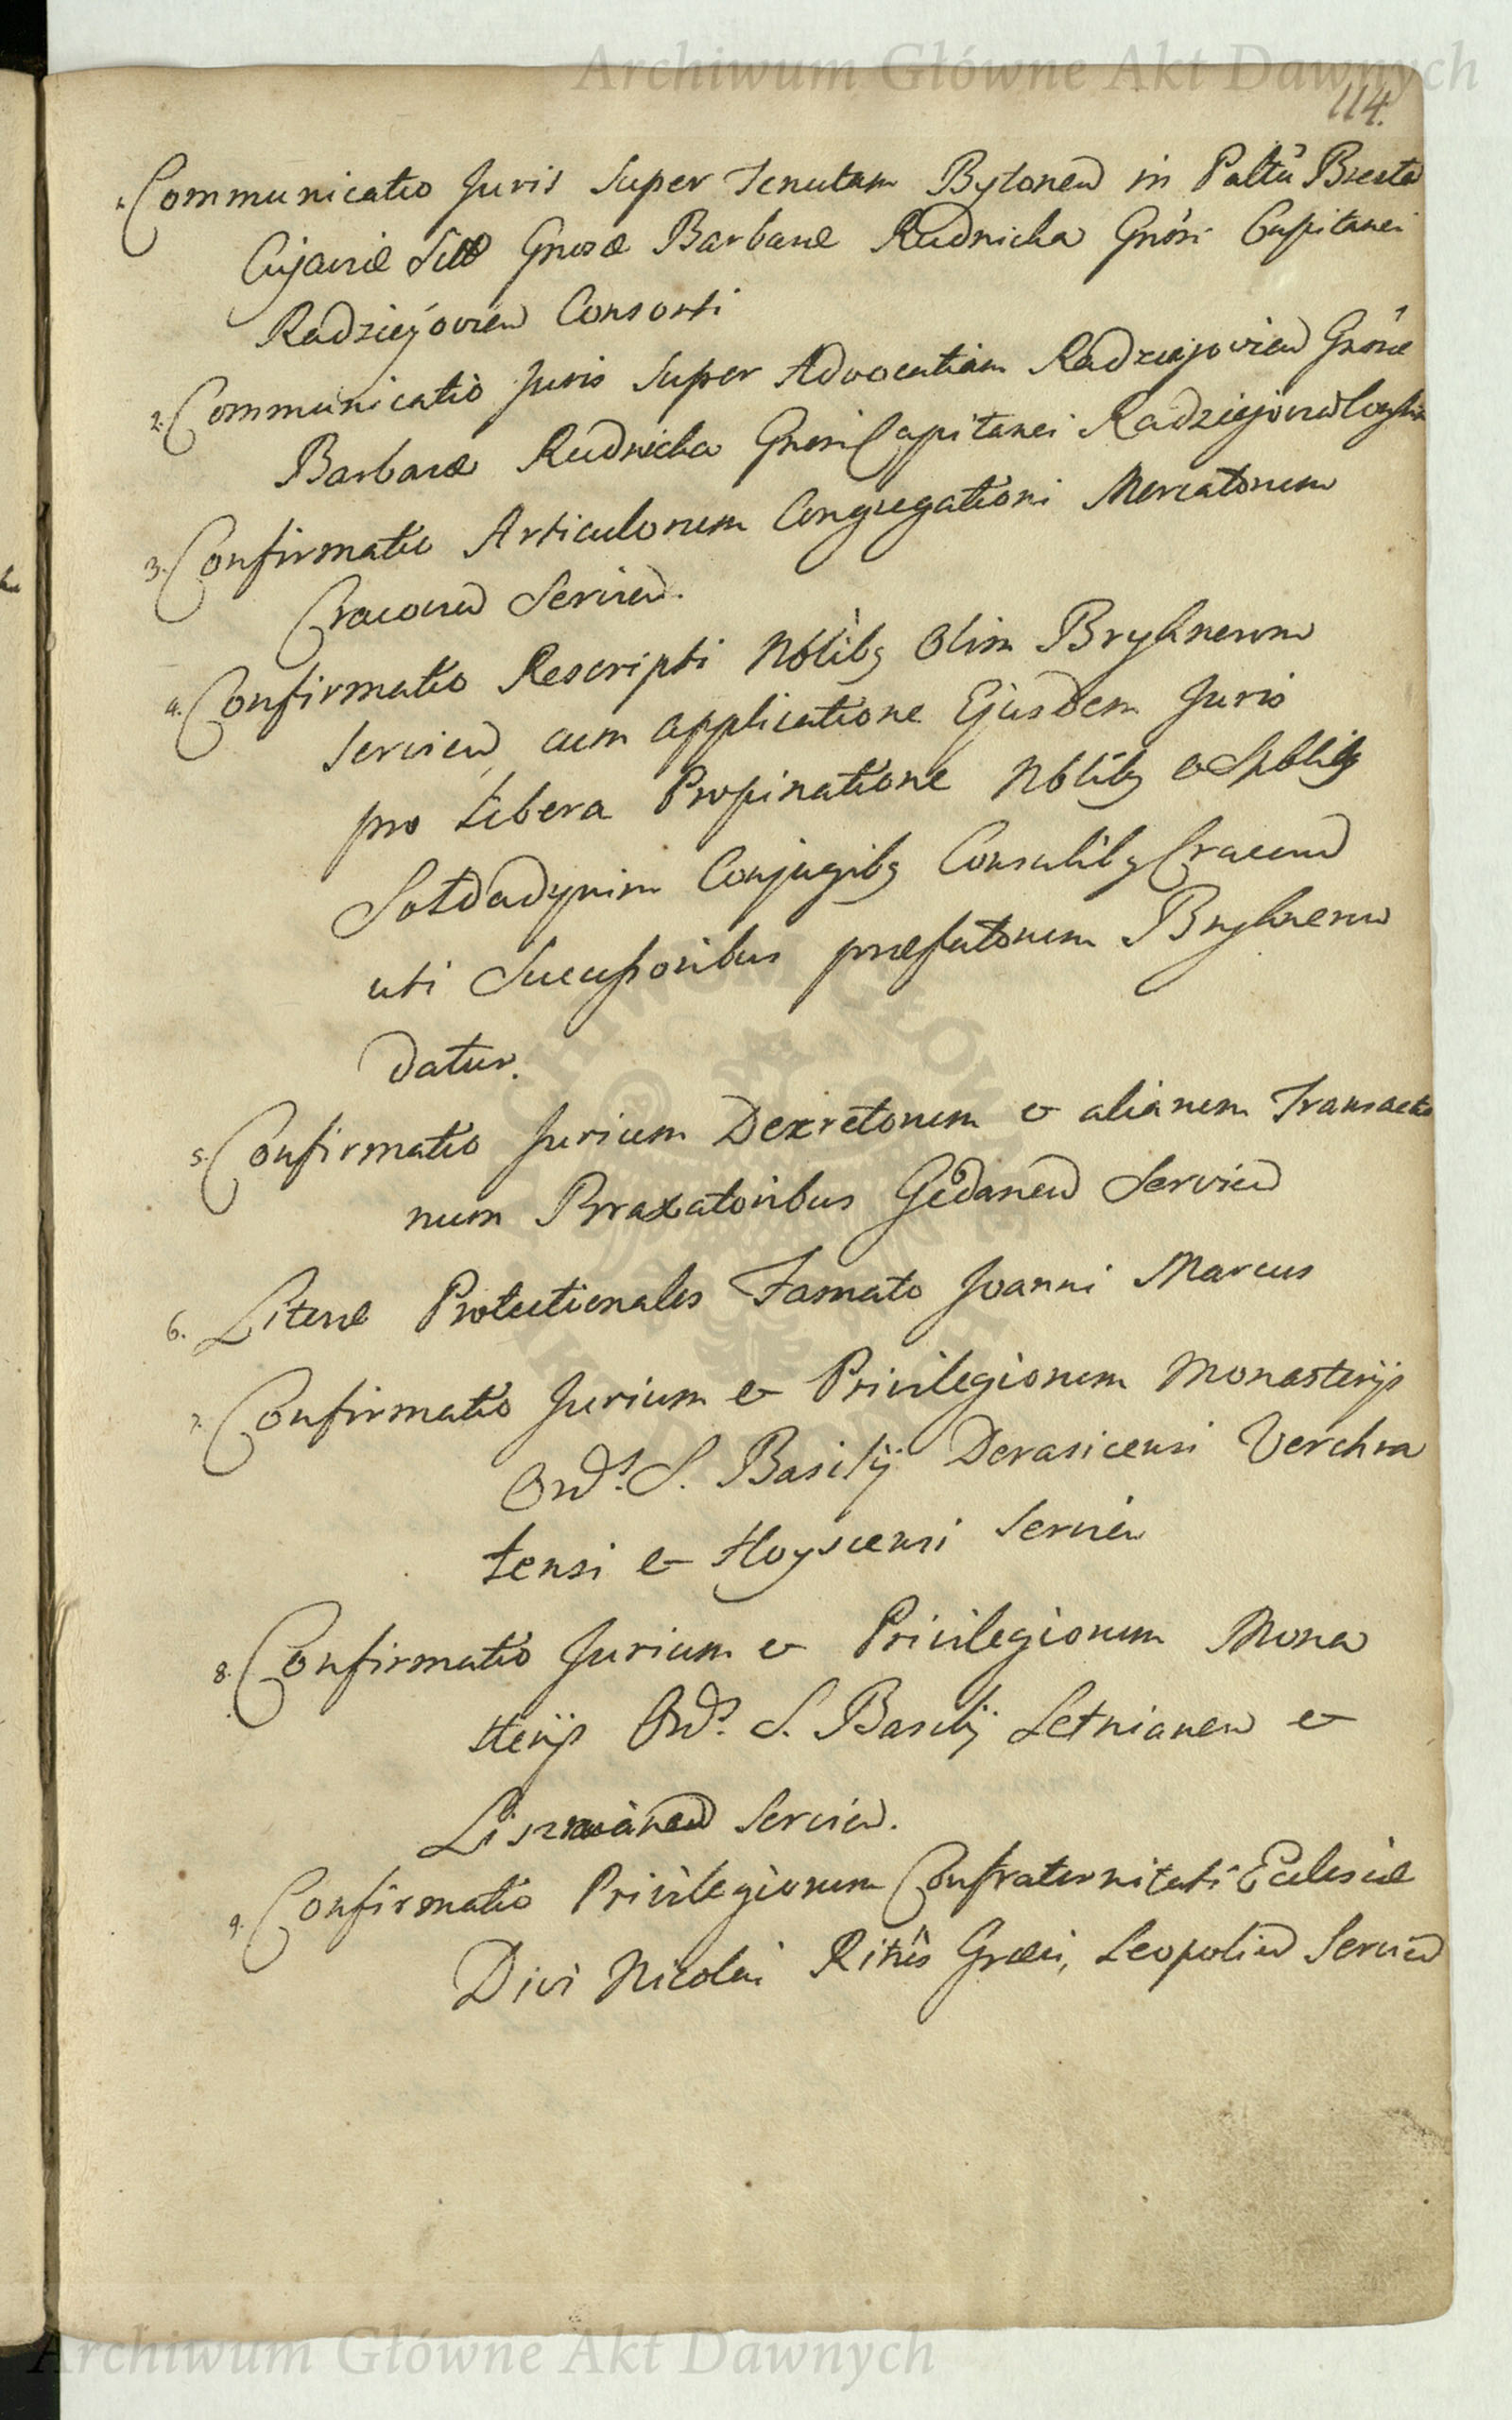 Archiwum Główne Akt Dawnych
114.
1. Communicatio Juris Super Tenutam Bytonen in Palttũ Bresta
Cujaviæ Sitæ Gnosæ Barbaræ Rudnicka Gnósi Capitanei
Radziejovien Consorti
2. Communicatio Juris Super Advocatiam Radziejovien Gnósæ
Barbaræ Rudnicka Gnosi Capitanei Radziejovien
3. Confirmatio Articulorum Congregationi Mercatorum
Cracovien Servien.
4. Confirmatio Rescripti Nblibq Olim Bryknerum
servien, cum applicatione Ejusdem Juris
pro libera Propinatione Nblibq Spblibq
Sotdadynim Conjugibq Consulibq Cracovien
uti Successoribus præfatorum Bryknerum
datur.
5. Confirmatio Jurium Decretorum et aliarum Transactio
num Braxatoribus Gedanen Servien
6. Literæ Protectionales Famato Joanni Marcus
7. Confirmatio Jurium et Privilegiorum Monasterijs
Ords. S. Basilij Derasicensi Verchra
tensi et Hoyscensi Servien
8. Confirmatio Jurium et Privilegiorum Mona
sterijs Ords. S. Basilij Letnianen et
Servien.
9. Confirmatio Privilegiorum Confraternitati Ecclesiæ
Divi Nicolai Ritûs Græci, Leopolien Servien
Archiwum Główne Akt Dawnych